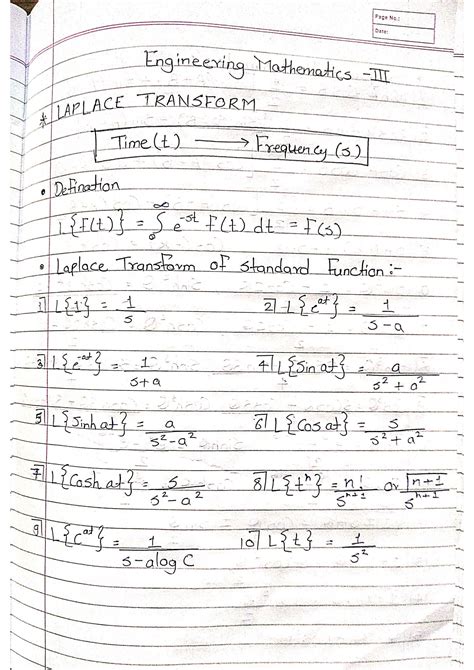 Page No.:
Date:
Engineering Mathematics - III
* LAPLACE TRANSFORM
Time (t) ⟶ Frequency (s)
• Defination
L{f(t)} = ∫₀^∞ e^-st f(t) dt = F(s)
• Laplace Transform of standard Function :-
1] L{1} = 1/s 2] L{e^at} = 1/(s-a)
3] L{e^-at} = 1/(s+a) 4] L{Sin at} = a/(s²+a²)
5] L{Sinh at} = a/(s²-a²) 6] L{Cos at} = s/(s²+a²)
7] L{Cosh at} = s/(s²-a²) 8] L{t^n} = n!/s^(n+1) or Γ(n+1)/s^(n+1)
9] L{C^at} = 1/(s-alog C) 10] L{t} = 1/s²